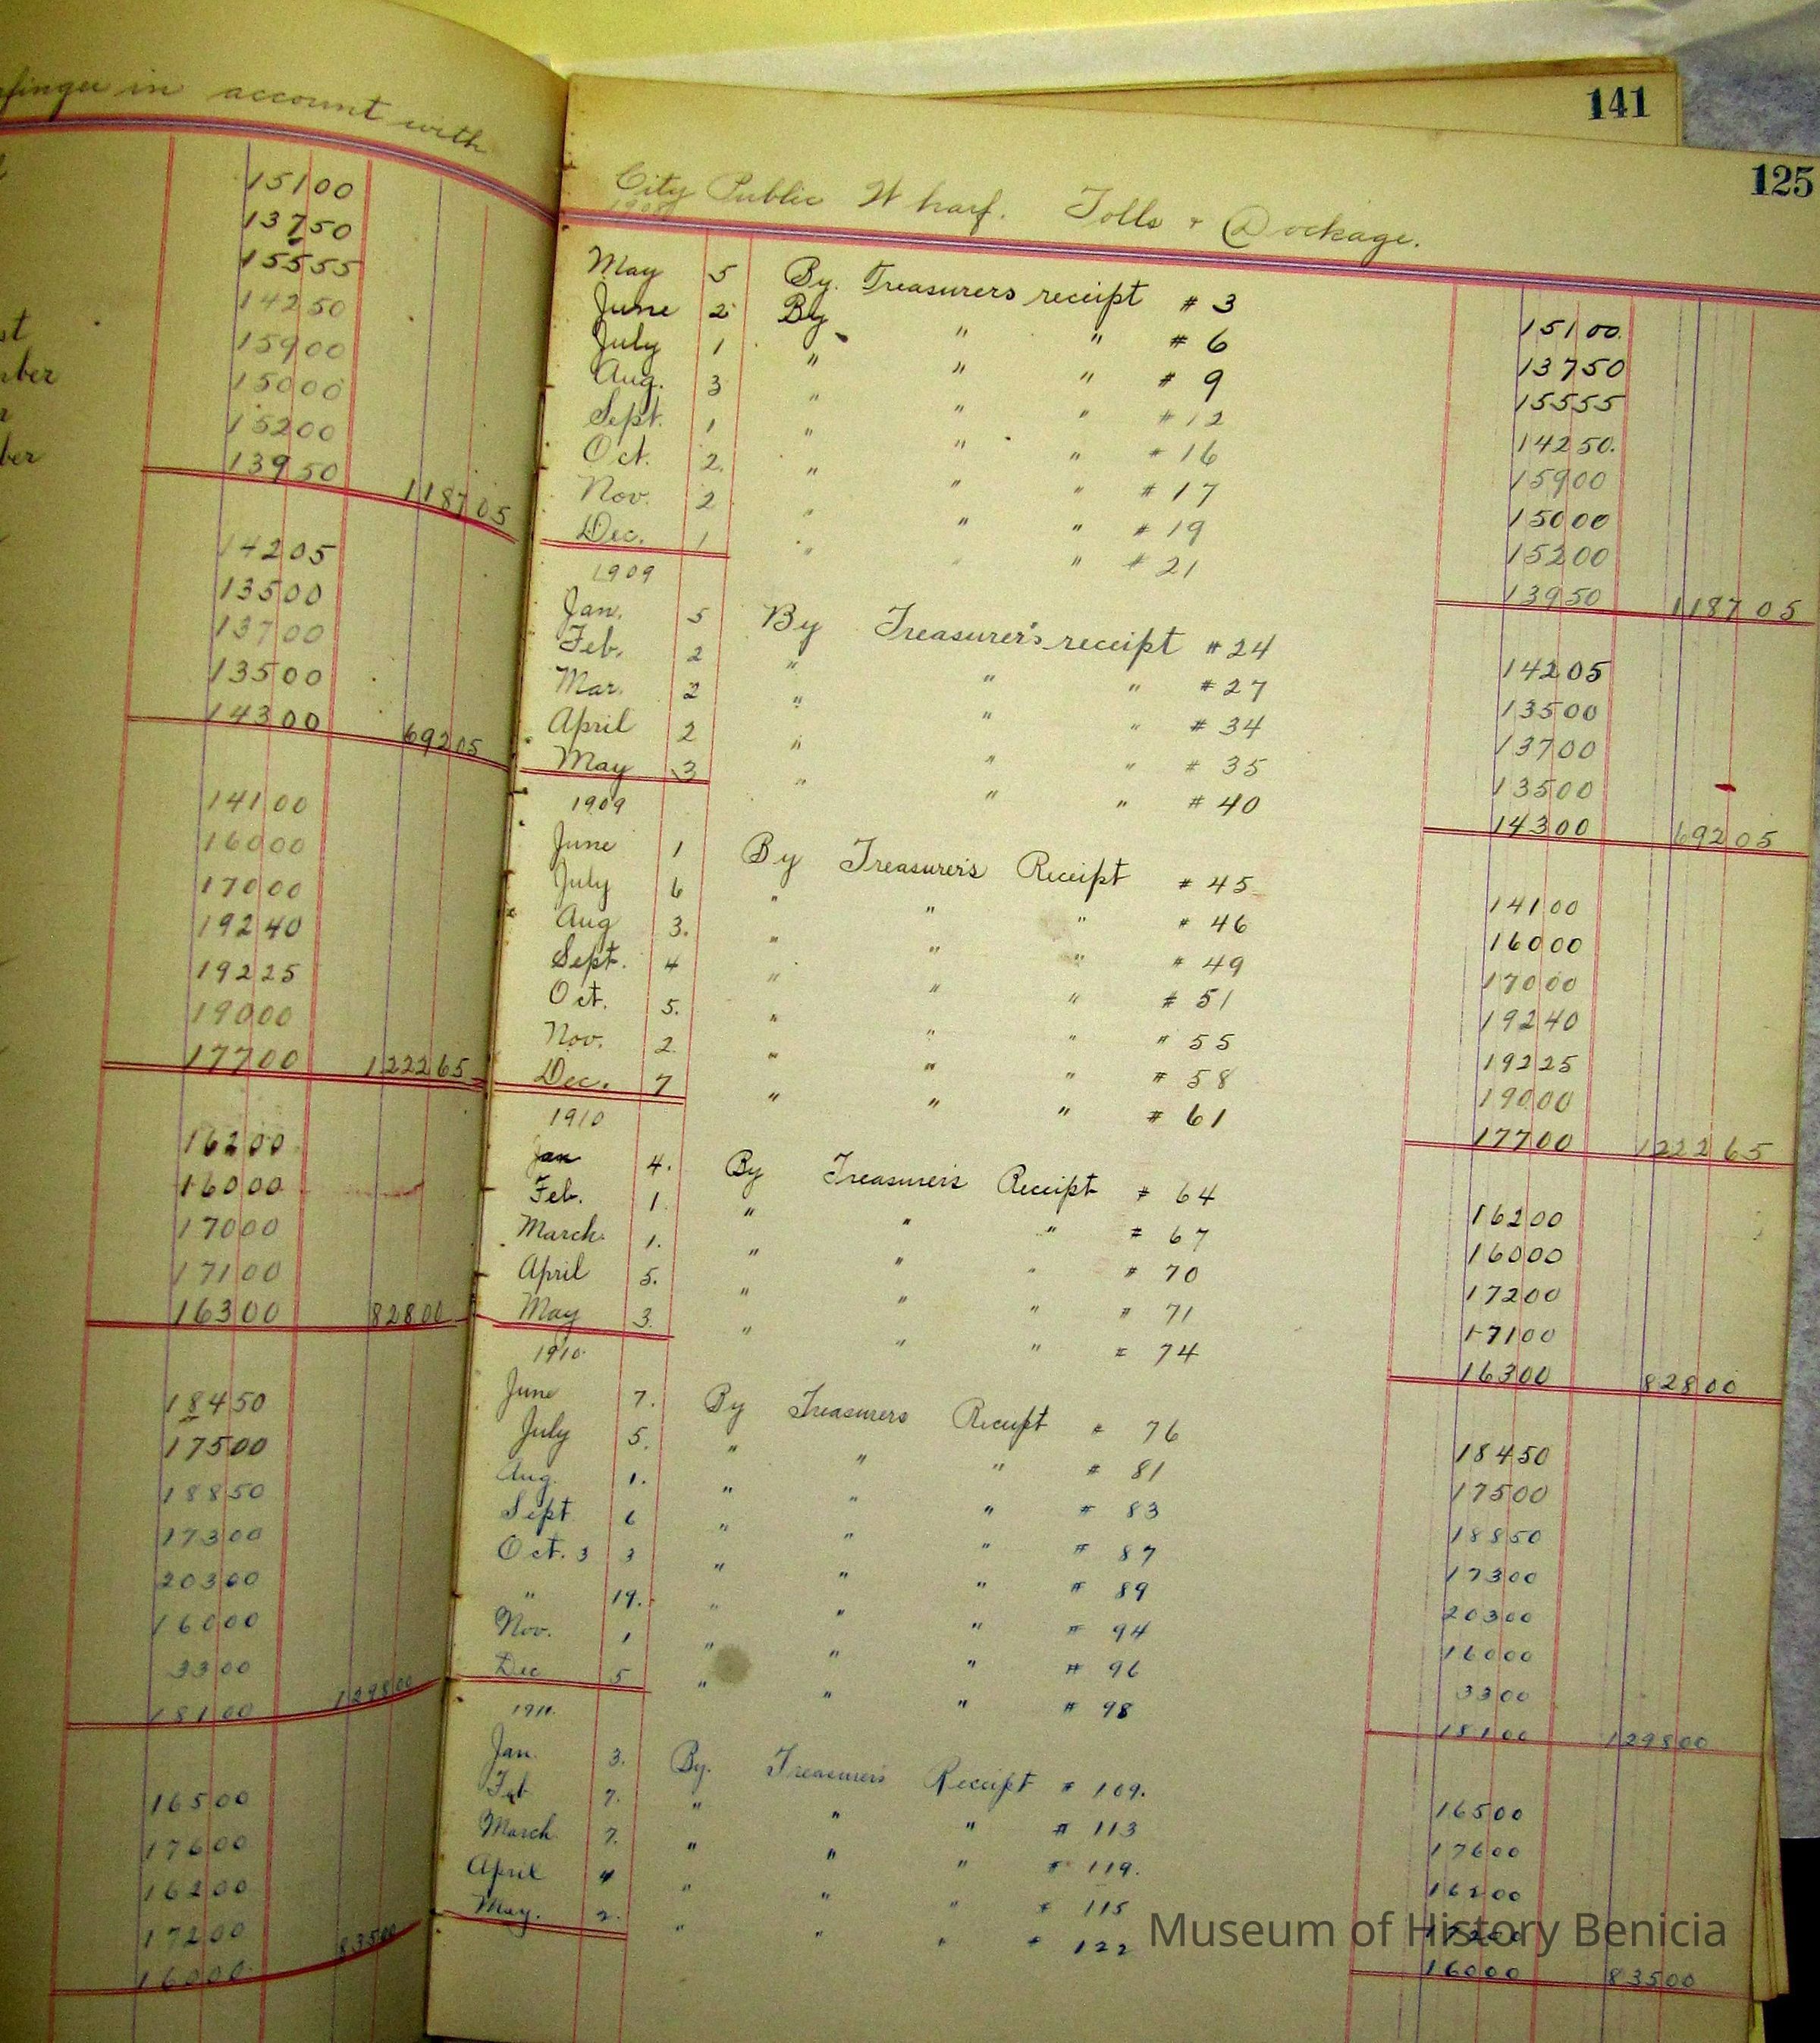 finger in account with
15100
13750
15555
14250
st 15900
mber 15000
r 15200
ber 13950 118705
14205
13500
13700
13500
14300 69205
14100
16000
17000
19240
19225
19000
17700 122265
16200
16000
17000
17100
16300 82800
18450
17500
18850
17300
20300
16000
3300
18100 129800
16500
17600
16200
17200
16000 83500
141
125
City Public Wharf. Tolls & Dockage.
1908
May 5 By. Treasurers receipt # 3 15100.
June 2 By " " # 6 13750
July 1 " " " # 9 15555
Aug. 3 " " " # 12 14250.
Sept. 1 " " " # 16 15900
Oct. 2. " " " # 17 15000
Nov. 2 " " " # 19 15200
Dec. 1 " " " # 21 13950 118705
1909
Jan. 5 By Treasurer's receipt # 24 14205
Feb. 2 " " " # 27 13500
Mar. 2 " " " # 34 13700
April 2 " " " # 35 13500
May 3 " " " # 40 14300 69205
1909
June 1 By Treasurer's Receipt # 45 14100
July 6 " " " # 46 16000
Aug 3. " " " # 49 17000
Sept. 4 " " " # 51 19240
Oct. 5. " " " " 55 19225
Nov. 2. " " " # 58 19000
Dec. 7 " " " # 61 17700 122265
1910
Jan 4. By Treasurer's Receipt # 64 16200
Feb. 1. " " " # 67 16000
March. 1. " " " # 70 17200
April 5. " " " # 71 17100
May 3. " " " # 74 16300 82800
1910
June 7. By Treasurers Receipt # 76 18450
July 5. " " " # 81 17500
Aug. 1. " " " # 83 18850
Sept 6 " " " # 87 17300
Oct. 3 3 " " " # 89 20300
" 19. " " " # 94 16000
Nov. 1 " " " # 96 3300
Dec 5 " " " # 98 18100 129800
1911.
Jan. 3. By. Treasurer's Receipt # 109. 16500
Feb 7. " " " # 113 17600
March 7. " " " # 119. 16200
April 4 " " " # 115 17200
May. 2. " " " " 122 16000 83500
Museum of History Benicia